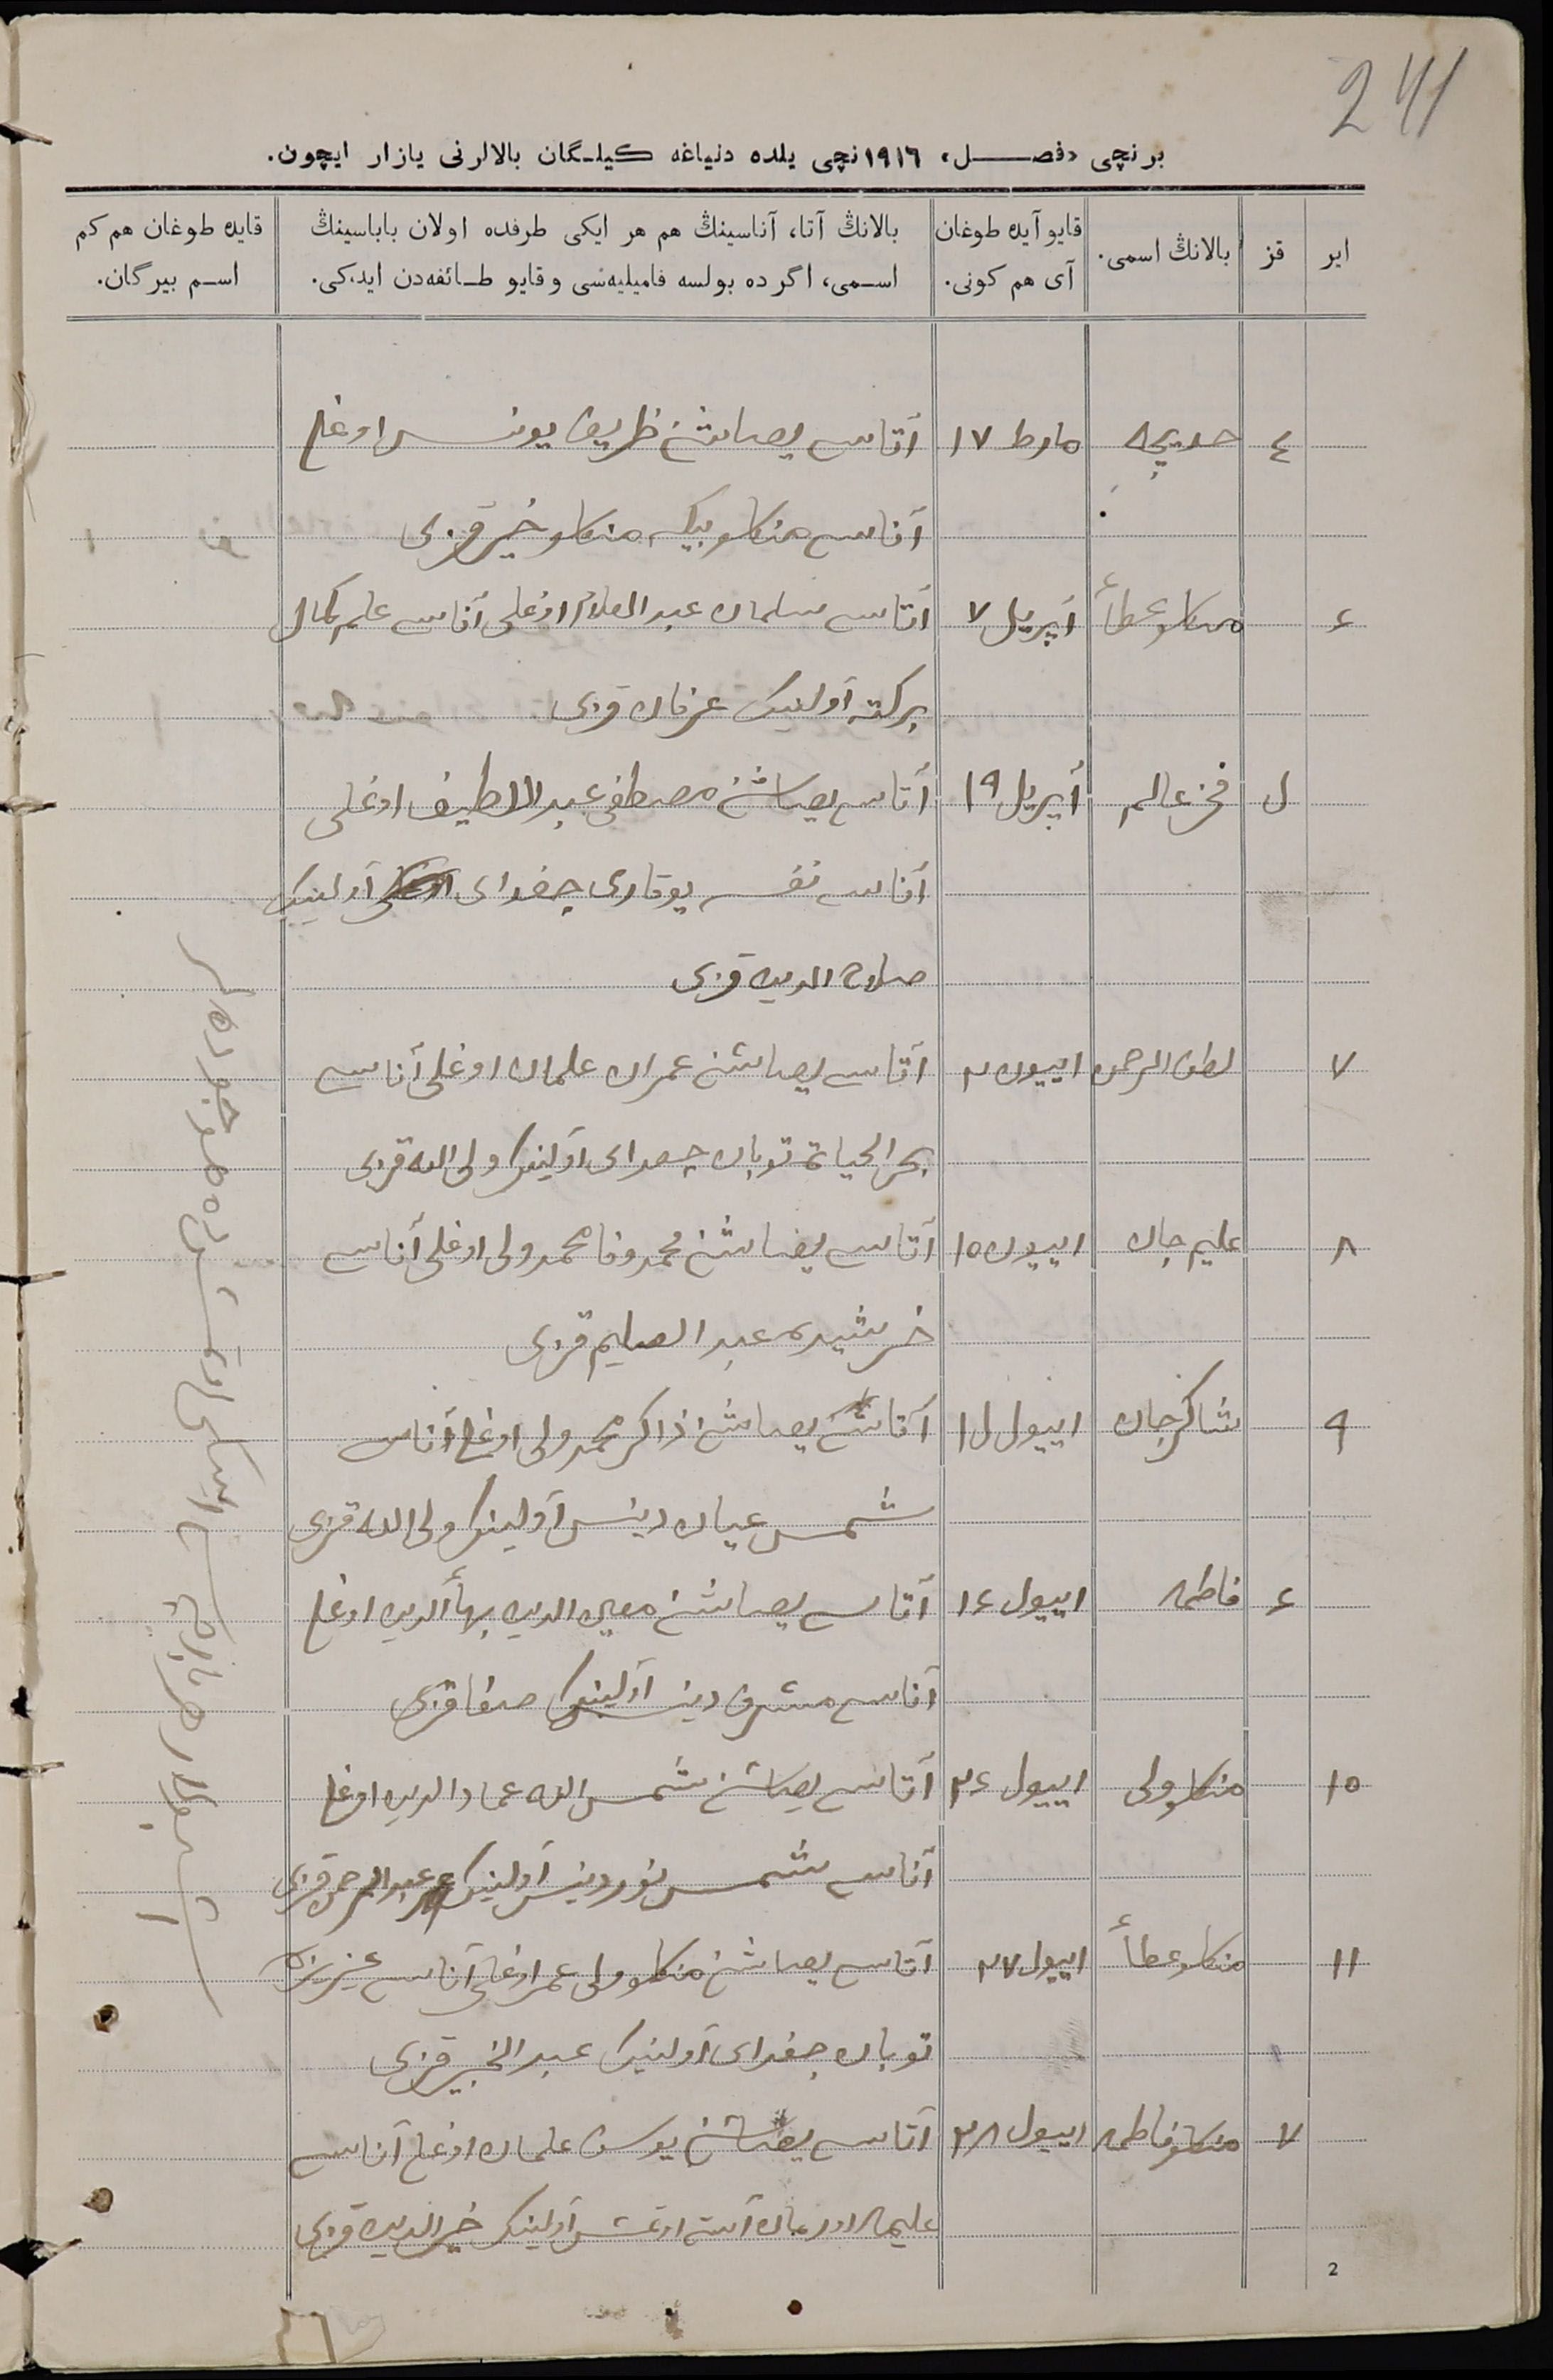 241
برنچی «فصل» ١٩١٦نچی یلده دنیاغه کیلگان بالالرنی یازار ایچون.
ایر
قز
بالانڭ اسمی.
قایو آیده طوغان
آی هم کونی.
بالانڭ آتا، آناسینڭ هم هر ایکی طرفده اولان باباسینڭ
اسمی، اگرده بولسه فامیلیه‌سی و قایو طائفه‌دن ایدکی.
قایده طوغان هم کم
اسم بیرگان.
٤ خدیجه مارط ١٧ آتاسی یصاشنی ظریف یونس اوغلی
آناسی منکلو بیکه منکلو خیر قزی
۶ منکلو عطأ اپریل ٧ آتاسی سلمان عبد العلام اوغلی آناسی علم کمال
برکته آولینیک عرفان قزی
ل فخر عالم اپریل ١٩ آتاسی یصاشنی مصطفی عبد اللطیف اوغلی
آناسی یوقاری چغدای آولینیک
صلاح الدین قزی
٧ لطف الرحمن اییون ٢ آتاسی یصاشنی عمران علمان اوغلی آناسی
بحر الحیاة توبان چغدای آولینیک ولی الله قزی
٨ علیم جان اییون ١٥ آتاسی یصاشنی محمد وفا محمد ولی اوغلی آناسی
خرشیده عبد العلیم قزی
٩ شاکر جان اییول ١ل آتاسی یصاشنی ذاکر محمد ولی اوغلی آناسی
شمس عیان دینس آولینیک ولی الله قزی
۶ فاطمه اییول ١۶ آتاسی یصاشنی معین الدین بهأ الدین اوغلی
آناسی مشرف دینس آولینیک صفا قزی
١٥ منکلو ولی اییول ٢۶ آتاسی یصاشنی شمس الله عماد الدین اوغلی
آناسی شمس نور دینس آولینیک عبد الرحمن قزی
١١ منکلو عطأ اییول ٢٧ آتاسی یصاشنی منکلو ولی عمر اوغلی آناسی عزیزه
توبان چغدای آولینیک عبد الخبیر قزی
٧ منکلو فاطمه اییول ٢٨ آتاسی یصاشنی یوسف علمان اوغلی آناسی
علیمه اورمان آستی آولینیک خیر الدین قزی
2